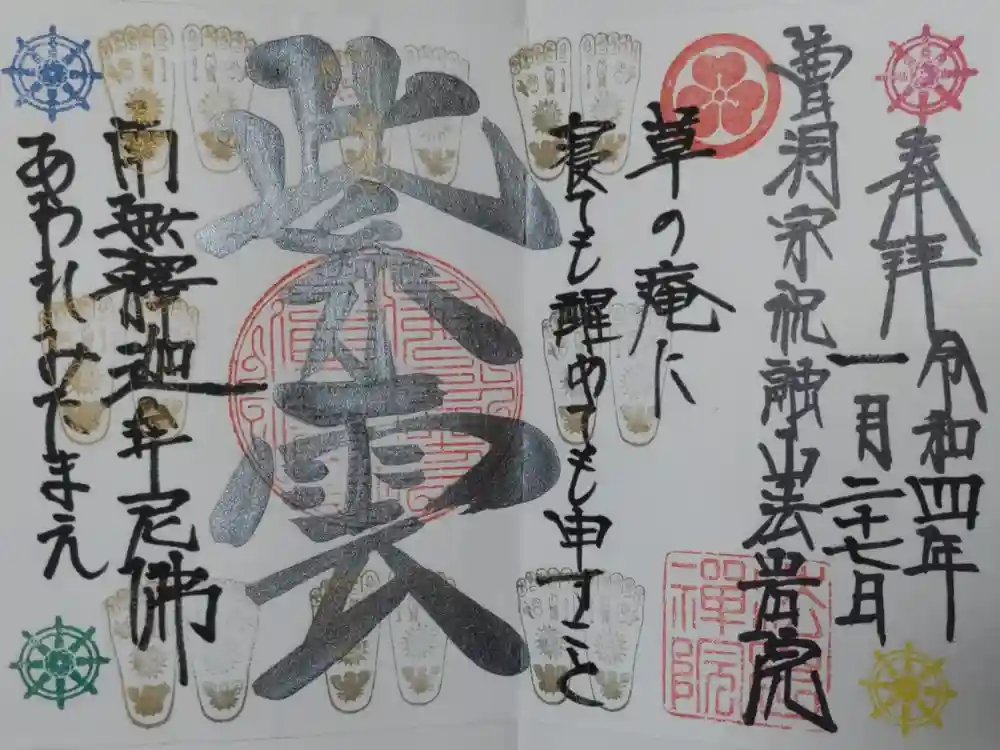 奉拝
令和四年
一月二十七日
曹洞宗祝融山法岩院
草の庵に
寝ても醒めても申すこと
紫雲
南無釋迦牟尼佛
あわれみてしまえ